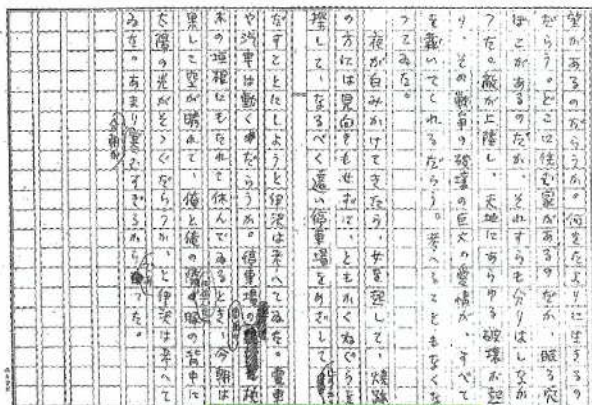 望があるのだらうか。何をたよりに生きるの
だらう。どこに住む家があるのだか、眠る穴
ぼこがあるのだか、それすらも分りはしなか
つた。敵が上陸し、天地にあらゆる破壊が起
り、その戦争の破壊の巨大な愛情が、すべて
を裁いてくれるだらう。考へることもなくな
つてゐた。
夜が白みかけてきたら、女を起して、焼跡
の方には見向きもせずに、ともかくねぐらを
探して、なるべく遠い停車場をめざして
だすことにしようと伊沢は考へてゐた。電車
や汽車は動くだらうか。停車場の
木の垣根にもたれて休んでゐるとき、今朝は
果して空が晴れて、俺と俺の豚の背中に
太陽の光がそゝぐだらうか、と伊沢は考へて
ゐた。あまり寒むすぎるからであつた。
今朝が